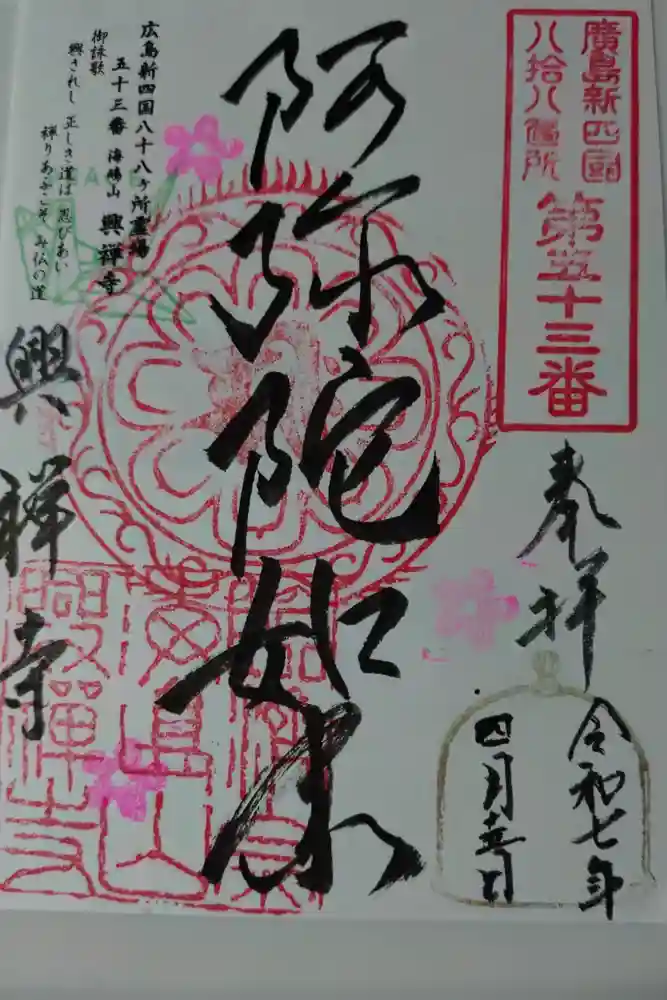 廣島新四國
八拾八箇所
第五十三番
奉拝
令和七年
四月十五日
阿弥陀如来
広島新四国八十八ヶ所霊場
五十三番 海嶋山 興禅寺
御詠歌
興されし 正しき道は 忍びあい
禅りあふこそ み仏の道
興禅寺